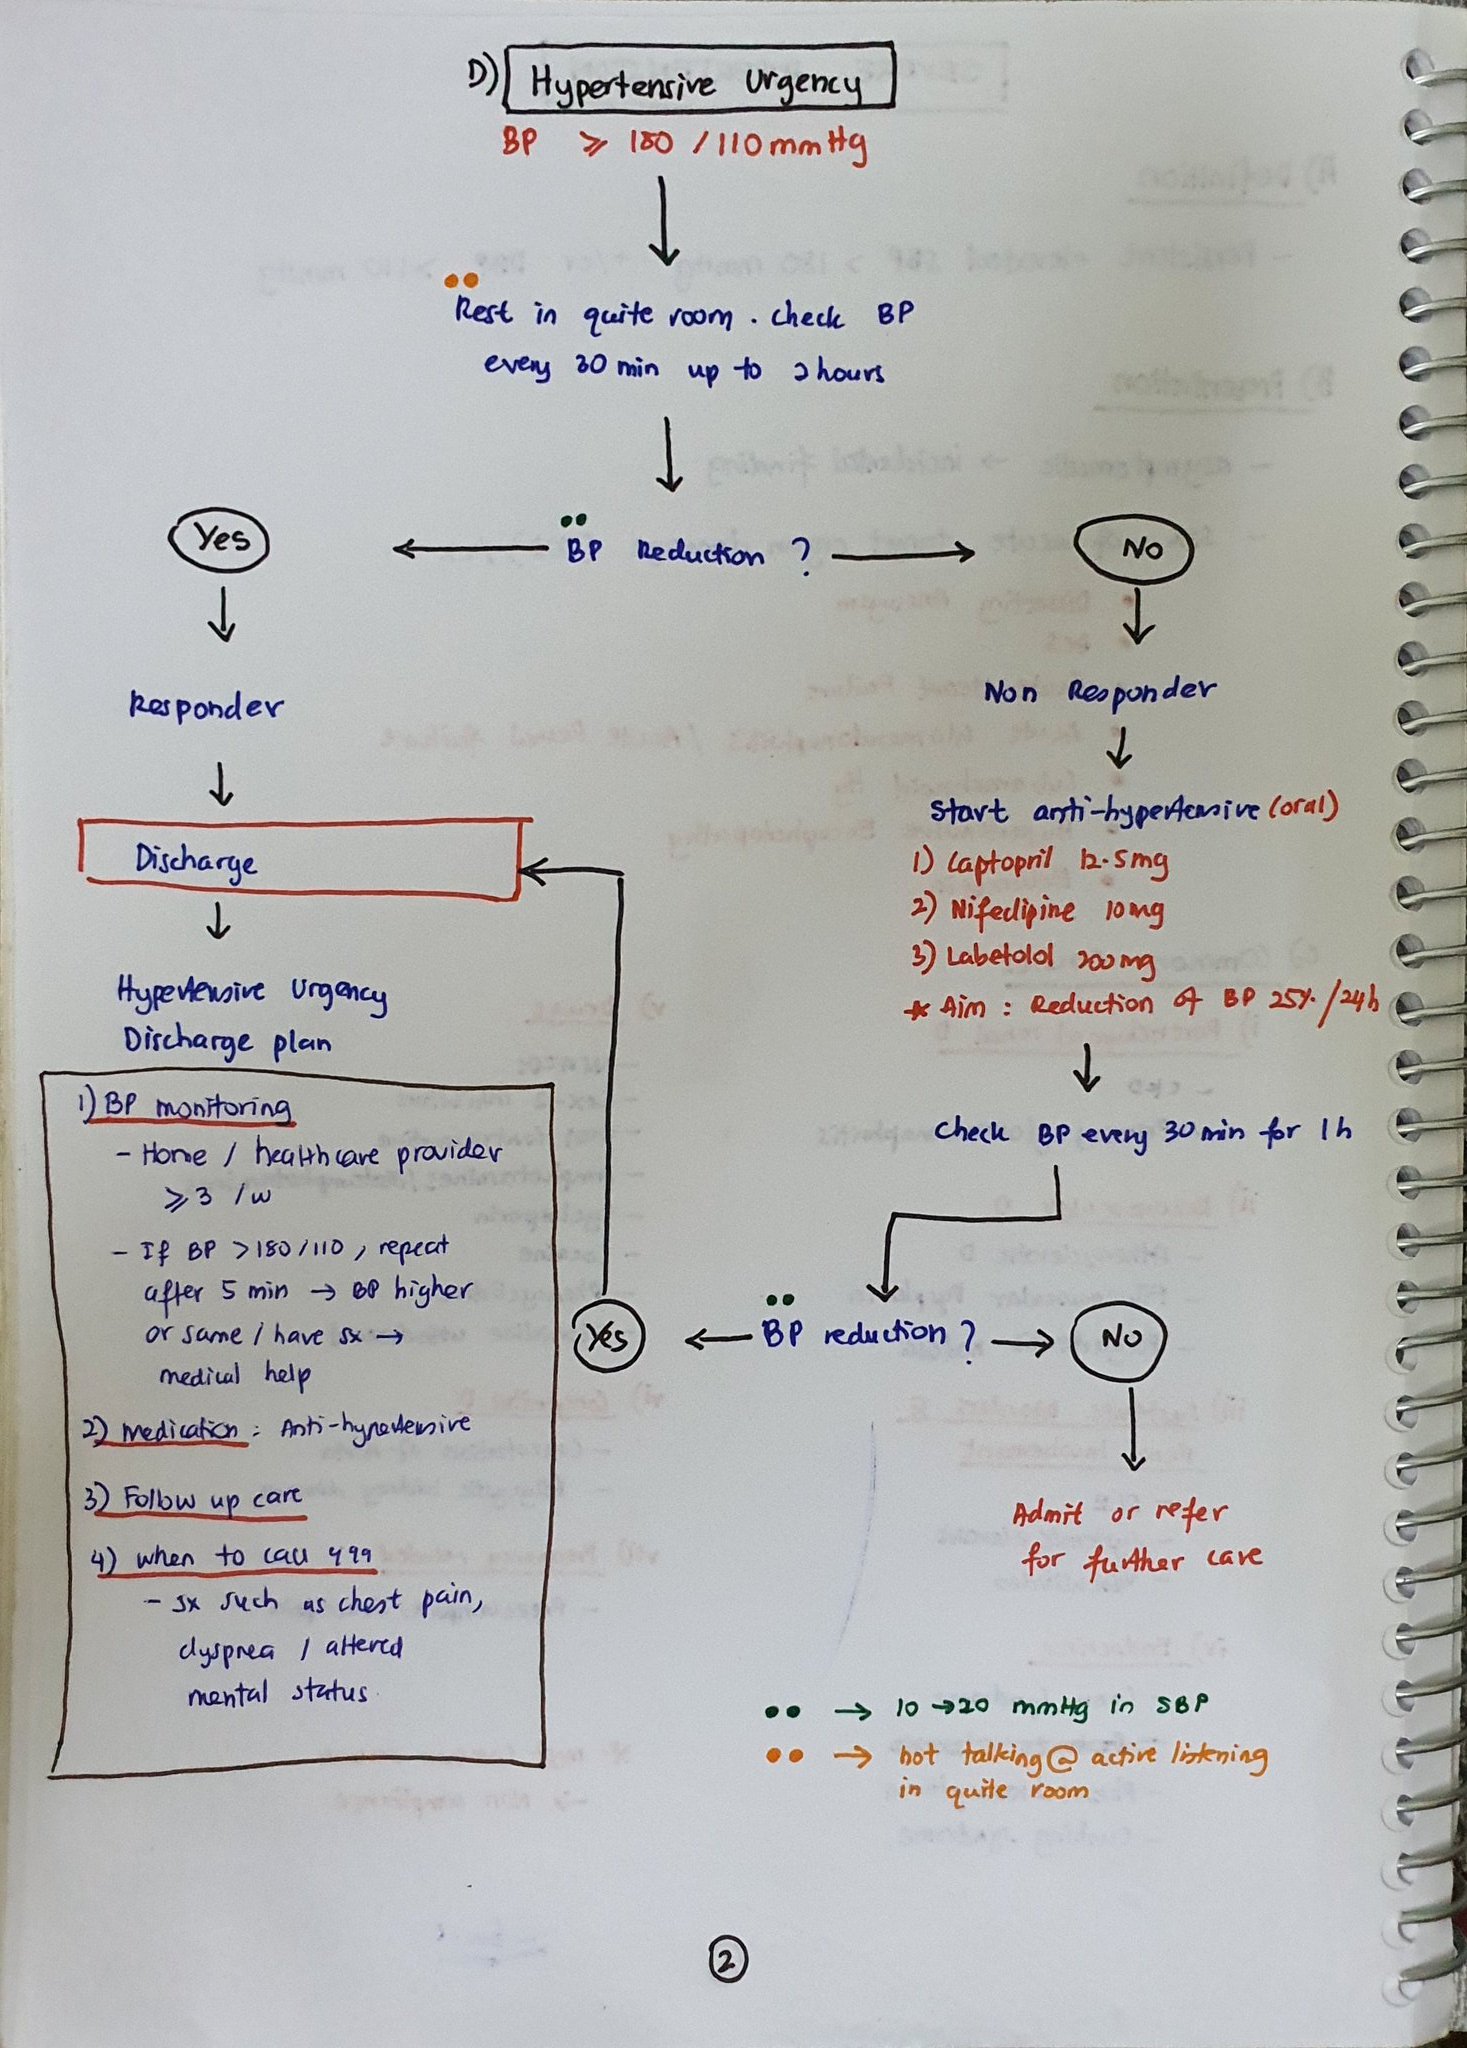 D) Hypertensive Urgency
BP ≥ 180 / 110 mmHg
Rest in quite room . check BP
every 30 min up to 2 hours
Yes
BP Reduction ?
No
Responder
Non Responder
Discharge
Start anti-hypertensive (oral)
1) Captopril 12.5mg
2) Nifedipine 10mg
3) Labetolol 200mg
* Aim : Reduction of BP 25% / 24h
Hypertensive Urgency
Discharge plan
check BP every 30 min for 1h
1) BP monitoring
- Home / healthcare provider
≥ 3 / w
- If BP > 180 / 110 , repeat
after 5 min → BP higher
or same / have sx →
medical help
Yes
BP reduction ?
No
2) Medication : Anti-hypertensive
3) Follow up care
4) when to call 999
- sx such as chest pain,
dyspnea / altered
mental status.
Admit or refer
for further care
•• → 10 → 20 mmHg in SBP
•• → not talking @ active listening
in quite room
2